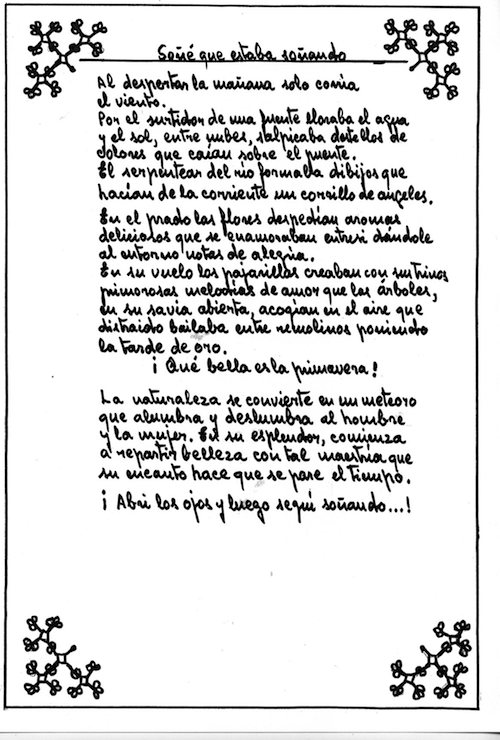 Soñé que estaba soñando
Al despertar la mañana solo corría
el viento.
Por el surtidor de una fuente lloraba el agua
y el sol, entre nubes, salpicaba destellos de
colores que caían sobre el puente.
El serpentear del río formaba dibujos que
hacían de la corriente un corcillo de ángeles.
En el prado las flores despedían aromas
deliciosos que se enamoraban entresi dándole
al entorno notas de alegría.
En su vuelo los pajarillos creaban con sus trinos
primorosas melodías de amor que los árboles,
en su savia abierta, acogían en el aire que
distraído bailaba entre remolinos poniendo
la tarde de oro.
¡Qué bella es la primavera!
La naturaleza se convierte en un meteoro
que alumbra y deslumbra al hombre
y la mujer. En su esplendor, comienza
a repartir belleza con tal maestría que
su encanto hace que se pare el tiempo.
¡Abrí los ojos y luego seguí soñando...!